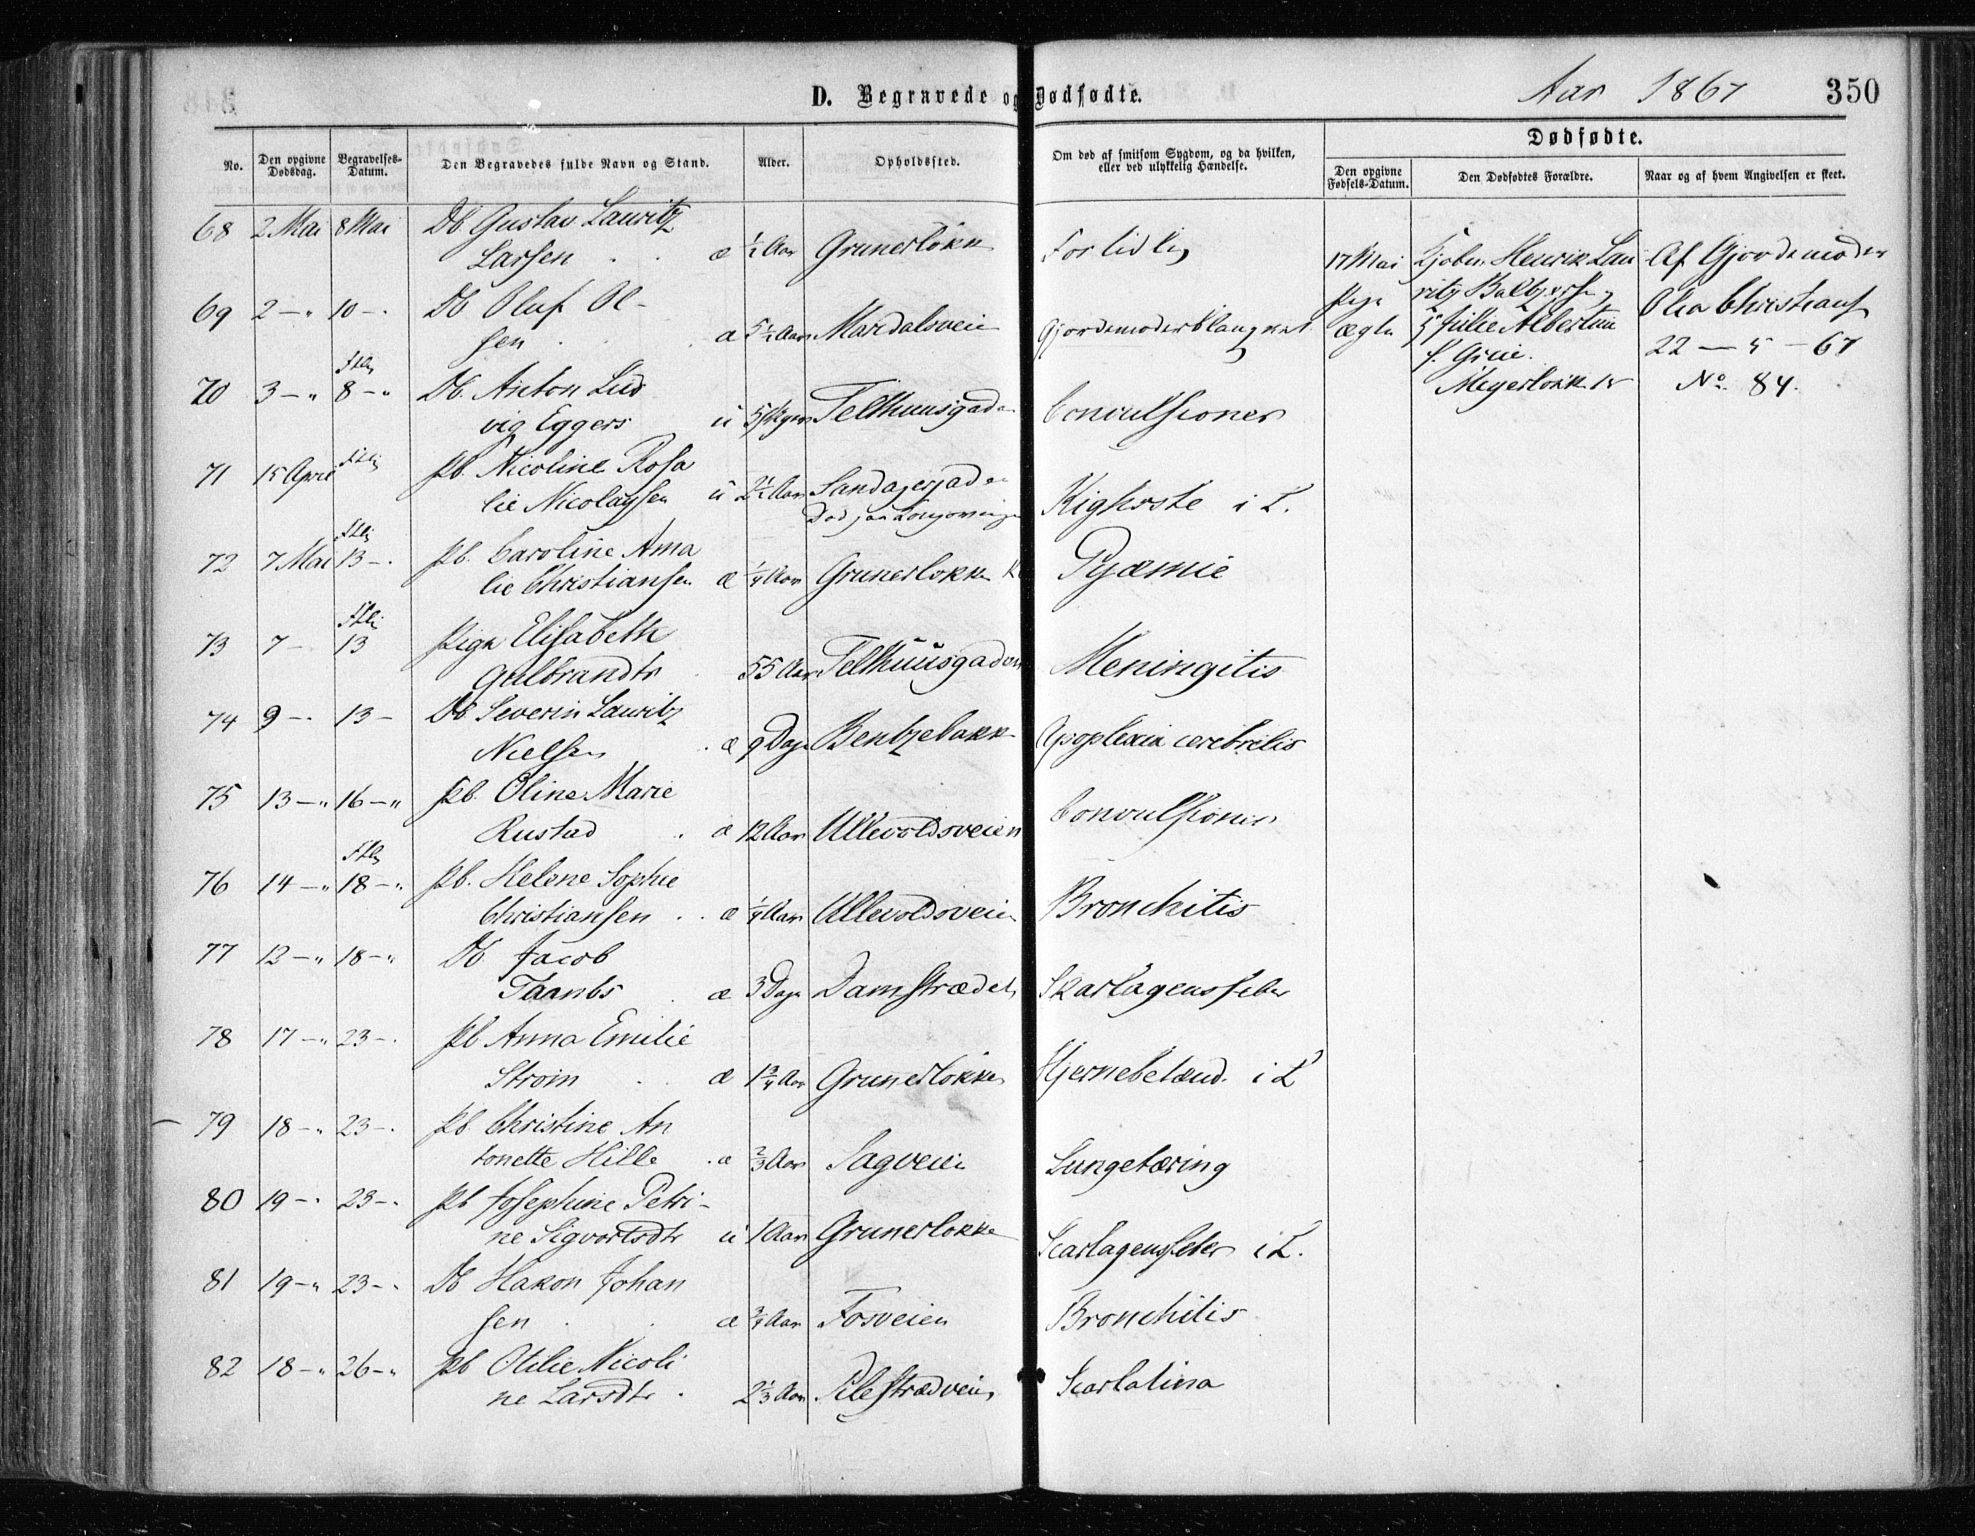 D. Begravede og Dødfødte.
Aar 1867
350
No.
Den opgivne Dødsdag.
Begravelses-Datum.
Den Begravedes fulde Navn og Stand.
Alder.
Opholdssted.
Om død af smitsom Sygdom, og da hvilken,
eller ved ulykkelig Hændelse.
Dødfødte.
Den opgivne Fødsels-Datum.
Den Dødfødtes Forældre.
Naar og af hvem Angivelsen er skeet.
68 2 Mai 8 Mai Db Gustav Lauritz
Larsen æ 1/2 Aar Grunerløkk For tidlig
17 Mai Henrik Lau Af Gjordemoder
69 2 -" 10 -. Db Oluf Ol-
sen æ 5 1/2 Aar Maridalsveie
Pige ritz Olia Christians
ægte Julie Albertine
22 - 5 - 67
70 3 -" 8 -" Db. Anton Lud
Meyerløkk No. 84.
vig Eggers u Telthuusgaden Convulsioner
71 15 April Pb. Nicoline Rosa
lie Nicolaysen u 2 1/2 Aar Kighoste i L.
72 7 Mai 13 -. Pb. Caroline Ama
lie Christiansen æ 1/4 Aar Grunerløkken Pyæmie
73 7 - 13 Pige Elisabeth
Gulbrandtr 55 Aar Telthuusgaden Meningitis
74 9 -. 13 - Db Severin Lauritz
Nielsen æ 9 Dage Bentzebakk Apoplexia cerebralis
75 13 -" 16 -" Pb. Oline Marie
Rustad æ 12 Aar Ullevoldsveien Convulsioner
76 14 -" 18 -" Pb. Helene Sophie
Christiansen æ 1/4 Aar Ullevoldsveien Bronchitis
77 12 -" 18 -" Db Jacob
Taanbs æ 3 Dage Damstrædet Skarlagensfeber
78 17 -" 23 -. Pb Anna Emilie
Strøm æ 1 3/4 Aar Grunerløkke Hjernebetænd. i L
79 18 -" 23 -. Pb Christine An
tonette Hille æ 2/3 Aar Sagveien Lungetæring
80 19 -" 23 -. Pb Josephine Petri-
ne Sigvortsdtr u 1 Aar Grunerløkke Scarlagensfeber i L.
81 19 -" 23 -" Db Hakon Johan
sen æ 3/4 Aar Fosveien Bronchitis
82 18 -" 26 -" Pb Otilie Nicoli
ne Larsdtr 2 1/3 Aar Pilestrædveien Scarlatina